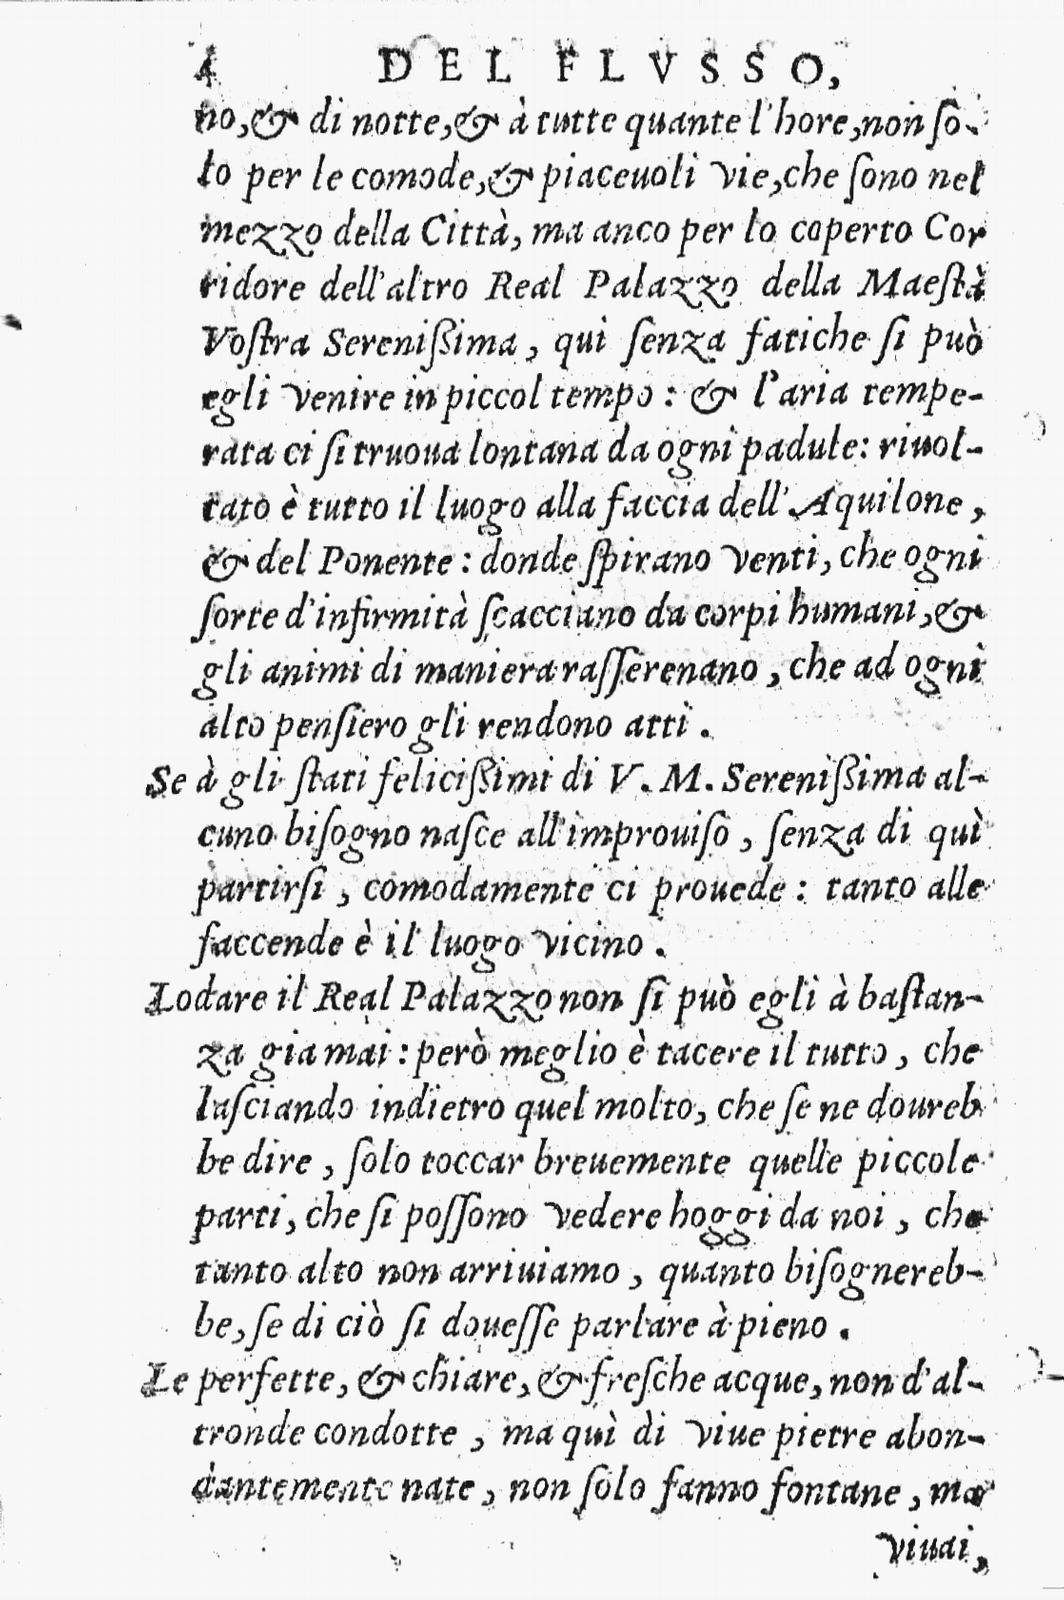 4 DEL FLVSSO,
no,& di notte,& à tutte quante l'hore,non ſo-
lo per le comode,& piaceuoli vie,che ſono nel
mezzo della Città, ma anco per lo coperto Cor
ridore dell'altro Real Palazzo della Maeſtà
Voſtra Sereniſſima, qui ſenza fatiche ſi può
egli venire in piccol tempo: & l'aria tempe-
rata ci ſi truoua lontana da ogni padule: riuol-
tato è tutto il luogo alla faccia dell'Aquilone,
& del Ponente: donde ſpirano venti, che ogni
ſorte d'infirmità ſcacciano da corpi humani,&
gli animi di maniera raſſerenano, che ad ogni
alto penſiero gli rendono atti.
Se à gli ſtati feliciſſimi di V. M. Sereniſſima al-
cuno biſogno naſce all'improuiſo, ſenza di quì
partirſi, comodamente ci prouede: tanto alle
faccende è il luogo vicino.
Lodare il Real Palazzo non ſi può egli à baſtan-
za gia mai: però meglio è tacere il tutto, che
laſciando indietro quel molto, che ſe ne doureb
be dire, ſolo toccar breuemente quelle piccole
parti, che ſi poſſono vedere hoggi da noi, che
tanto alto non arriuiamo, quanto biſognereb-
be, ſe di ciò ſi doueſſe parlare à pieno.
Le perfette, & chiare, & freſche acque, non d'al-
tronde condotte, ma quì di viue pietre abon-
dantemente nate, non ſolo fanno fontane, ma
viuai,